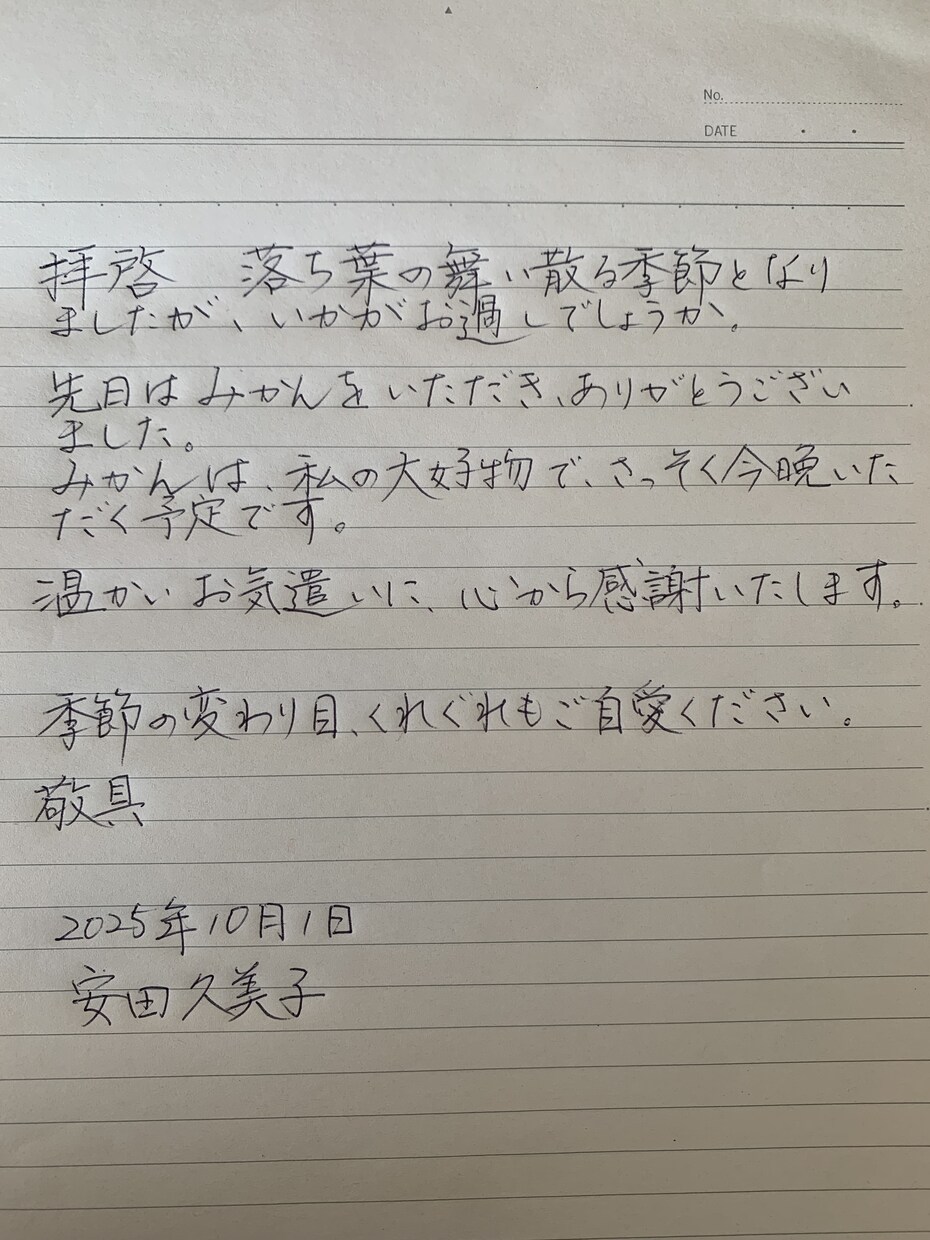 No.
DATE
拝啓　落ち葉の舞い散る季節となり
ましたが、いかがお過しでしょうか。
先日はみかんをいただき、ありがとうござい
ました。
みかんは、私の大好物で、さっそく今晩いた
だく予定です。
温かいお気遣いに、心から感謝いたします。
季節の変わり目、くれぐれもご自愛ください。
敬具
2025年10月1日
安田久美子